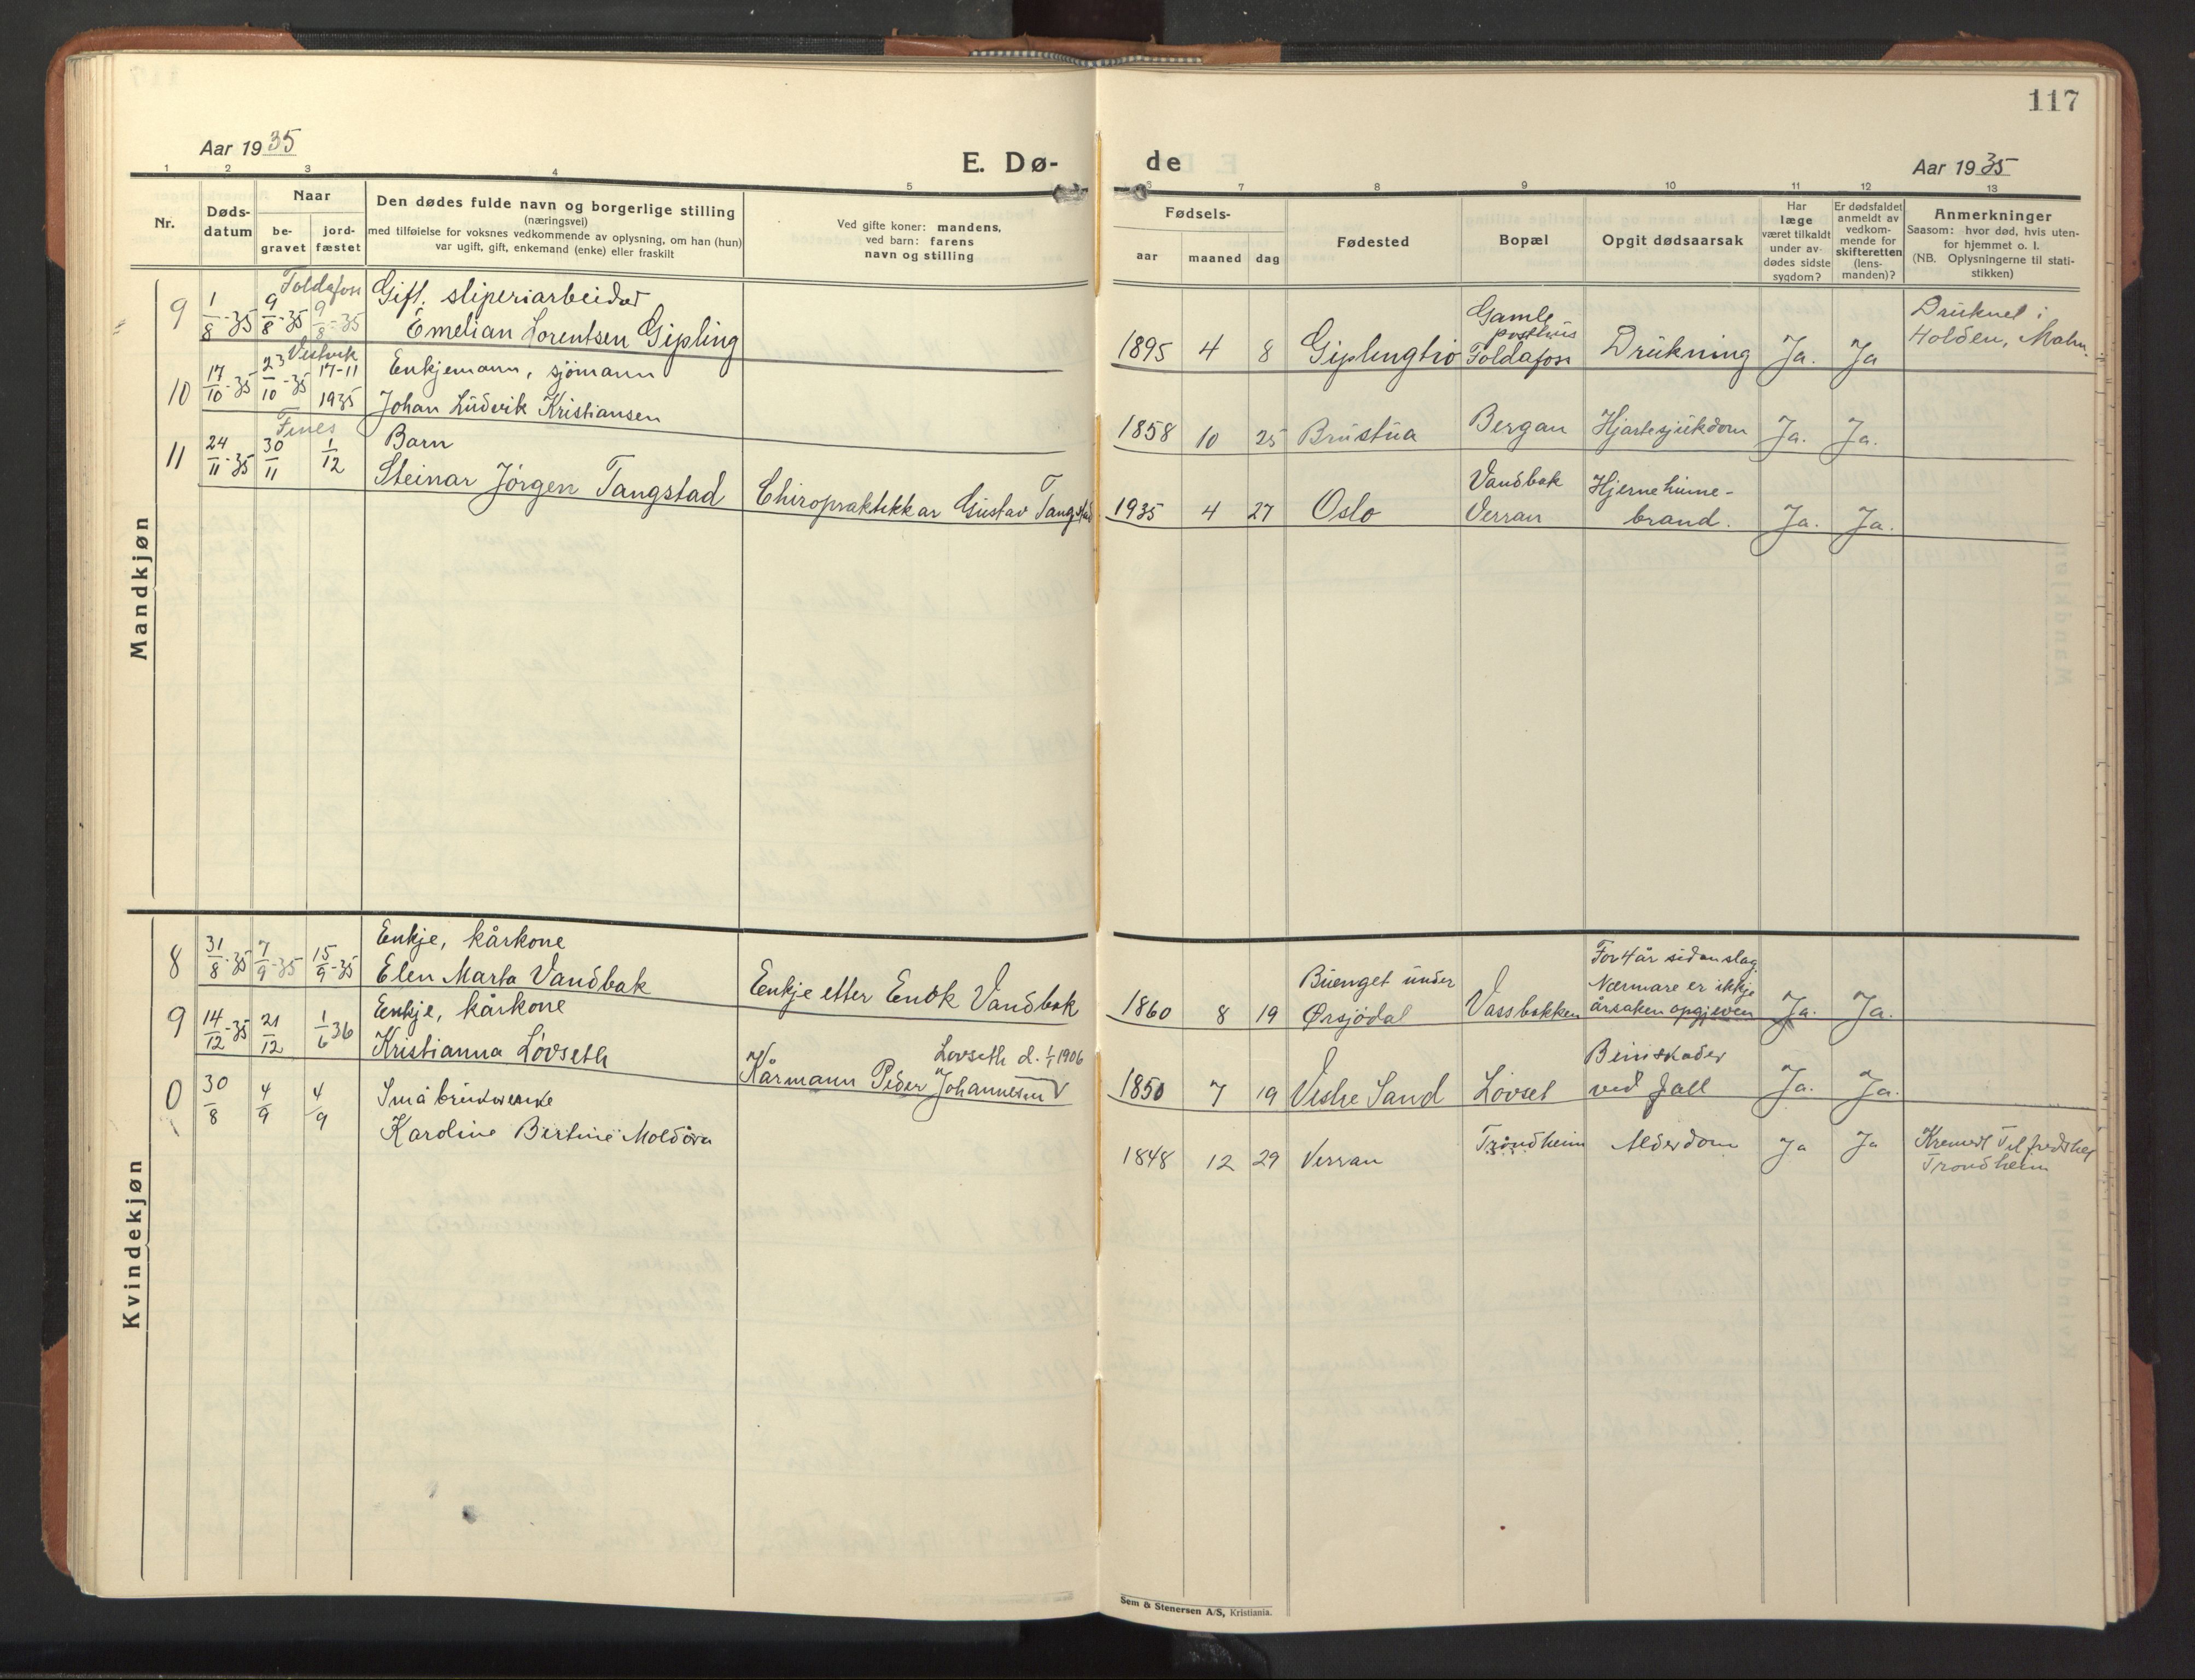 117
Aar 1935
E. Dø-
de
Aar 1935
1 2 3 4 5 6 7 8 9 10 11 12 13
Nr.
Døds-
datum
Naar
be-
gravet
jord-
fæstet
Den dødes fulde navn og borgerlige stilling
(næringsvei)
med tilføielse for voksnes vedkommende av oplysning, om han (hun)
var ugift, gift, enkemand (enke) eller fraskilt
Ved gifte koner: mandens,
ved barn: farens
navn og stilling
Fødsels-
aar maaned dag
Fødested
Bopæl
Opgit dødsaarsak
Har
læge
været tilkaldt
under av-
dødes sidste
sygdom?
Er dødsfaldet
anmeldt av
vedkom-
mende for
skifteretten
(lens-
manden)?
Anmerkninger
Saasom: hvor død, hvis uten-
for hjemmet o. l.
(NB. Oplysningerne til stati-
stikken)
Mandkjøn
Foldafoss
9 1/8-35 9/8-35 9/8-35
Gift. sliperiarbeidar
Emelian Lorentsen Gipling
1895 4 8
Giplingtrø
Gamle
posthus
Foldafoss
Drukning
Ja. Ja
Druknet i
Holden, Malm.
Vestvik
10 17/10-35 23/10-35 17-11
1935
Enkjemann, sjömann
Johan Ludvik Kristiansen
1858 10 25 Brustua Bergan Hjartesjukdom Ja. Ja.
Fines
11 24/11-35 30/11 1/12
Barn
Steinar Jörgen Tangstad
Chiropraktikkar Gustav Tangstad
1935 4 27 Oslo
Vandbak
Verran
Hjernehinne-
brand.
Ja. Ja.
Kvindekjøn
8 31/8-35 7/9-35 15/9-35
Enkje, kårkone
Elen Marta Vandbak
Enkje etter Enok Vandbak
1860 8 19
Buenget under
Ørsjödal
Vassbakken
For 4 år sidan slag.
Nærmare er ikkje
årsaken opgjeven
Ja. Ja.
9 14/12-35 21/12 1/6 36
Enkje, kårkone
Kristianna Lövseth
Lovseth d. 1/1 1906
Kårmann Peder Johannesen
1850 7 19 Vestre Sand Lövset
Beinskader
ved fall
Ja. Ja.
0 30/8 4/9 4/9
Småbrukerenke
Karoline Bertine Moldöra
1848 12 29 Verran Trondheim Alderdom Ja Ja
Kremert Tilfredshet
Trondheim
Sem & Stenersen A/S, Kristiania.